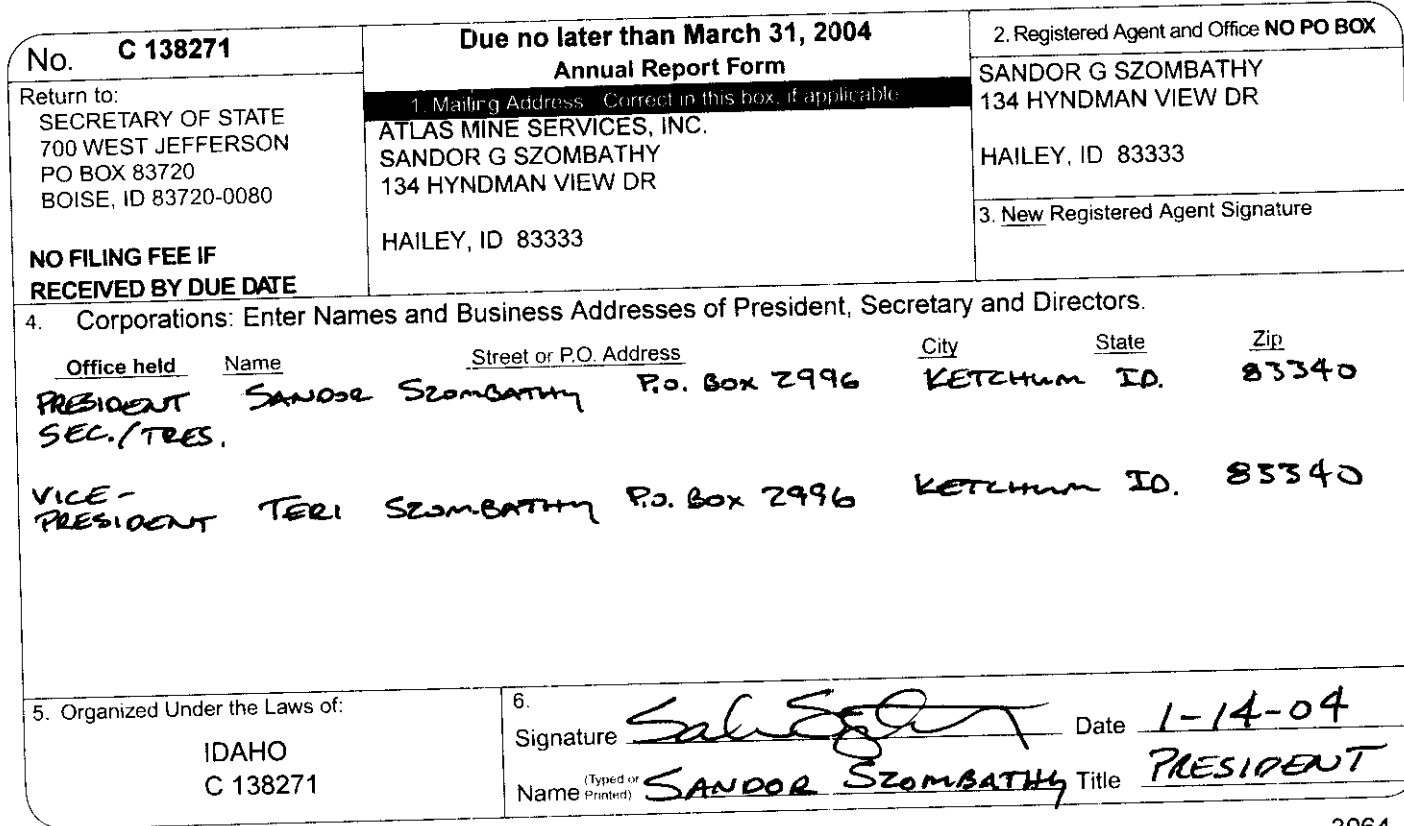 No. C 138271
Return to:
SECRETARY OF STATE
700 WEST JEFFERSON
PO BOX 83720
BOISE, ID 83720-0080
NO FILING FEE IF
RECEIVED BY DUE DATE
Due no later than March 31, 2004
Annual Report Form
1. Mailing Address Correct in this box, if applicable
ATLAS MINE SERVICES, INC.
SANDOR G SZOMBATHY
134 HYNDMAN VIEW DR
HAILEY, ID 83333
2. Registered Agent and Office NO PO BOX
SANDOR G SZOMBATHY
134 HYNDMAN VIEW DR
HAILEY, ID 83333
3. New Registered Agent Signature
4. Corporations: Enter Names and Business Addresses of President, Secretary and Directors.
Office held Name Street or P.O. Address City State Zip
PRESIDENT SANDOR SZOMBATHY P.O. BOX 2996 KETCHUM ID. 83340
SEC./TRES.
VICE-
PRESIDENT TERI SZOMBATHY P.O. BOX 2996 KETCHUM ID. 83340
5. Organized Under the Laws of:
IDAHO
C 138271
6.
Signature Date 1-14-04
Name (Typed or Printed) SANDOR SZOMBATHY Title PRESIDENT